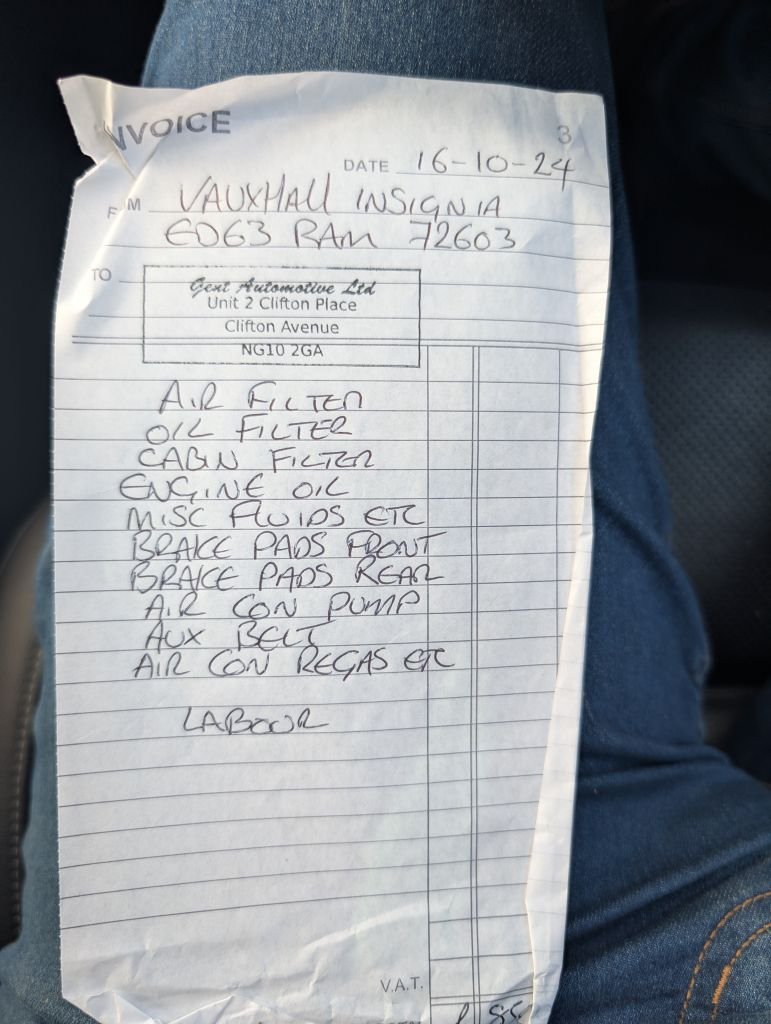 INVOICE
3
DATE 16-10-24
F M VAUXHALL INSIGNIA
EO63 RAM 72603
TO
Gent Automotive Ltd
Unit 2 Clifton Place
Clifton Avenue
NG10 2GA
AIR FILTER
OIL FILTER
CABIN FILTER
ENGINE OIL
MISC FLUIDS ETC
BRAKE PADS FRONT
BRAKE PADS REAR
AIR CON PUMP
AUX BELT
AIR CON REGAS ETC
LABOUR
V.A.T.